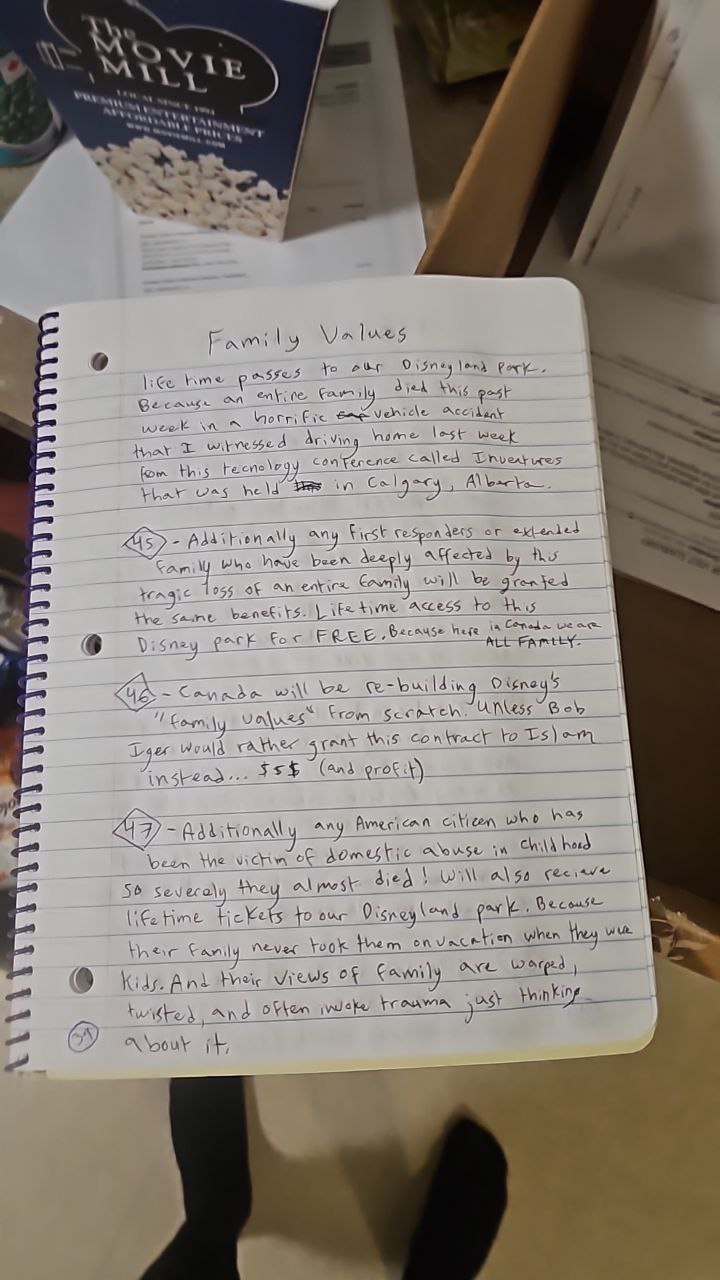 The
MOVIE
MILL
LOCAL SINCE 1991
PREMIUM ENTERTAINMENT
AFFORDABLE PRICES
WWW.MOVIEMILL.COM
Family Values
life time passes to our Disneyland Park.
Because an entire family died this past
week in a horrific vehicle accident
that I witnessed driving home last week
from this tecnology conference called Inventures
that was held in Calgary, Alberta.
45 - Additionally any first responders or extended
family who have been deeply affected by this
tragic loss of an entire family will be granted
the same benefits. Lifetime access to this
Disney park for FREE. Because here in Canada we are
ALL FAMILY.
46 - Canada will be re-building Disney's
"family values" from scratch. Unless Bob
Iger would rather grant this contract to Islam
instead... $$$ (and profit)
47 - Additionally any American citizen who has
been the victim of domestic abuse in childhood
so severely they almost died! Will also recieve
lifetime tickets to our Disneyland park. Because
their family never took them on vacation when they were
kids. And their views of family are warped,
twisted, and often invoke trauma just thinking
about it.
39